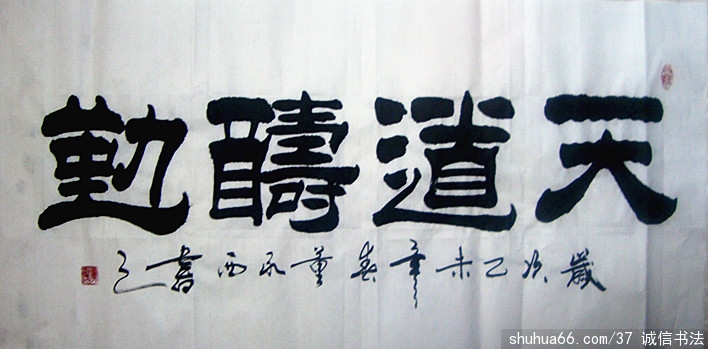 天道醻勤
歲次乙未年春董西書之
shuhua66.com/37 诚信书法